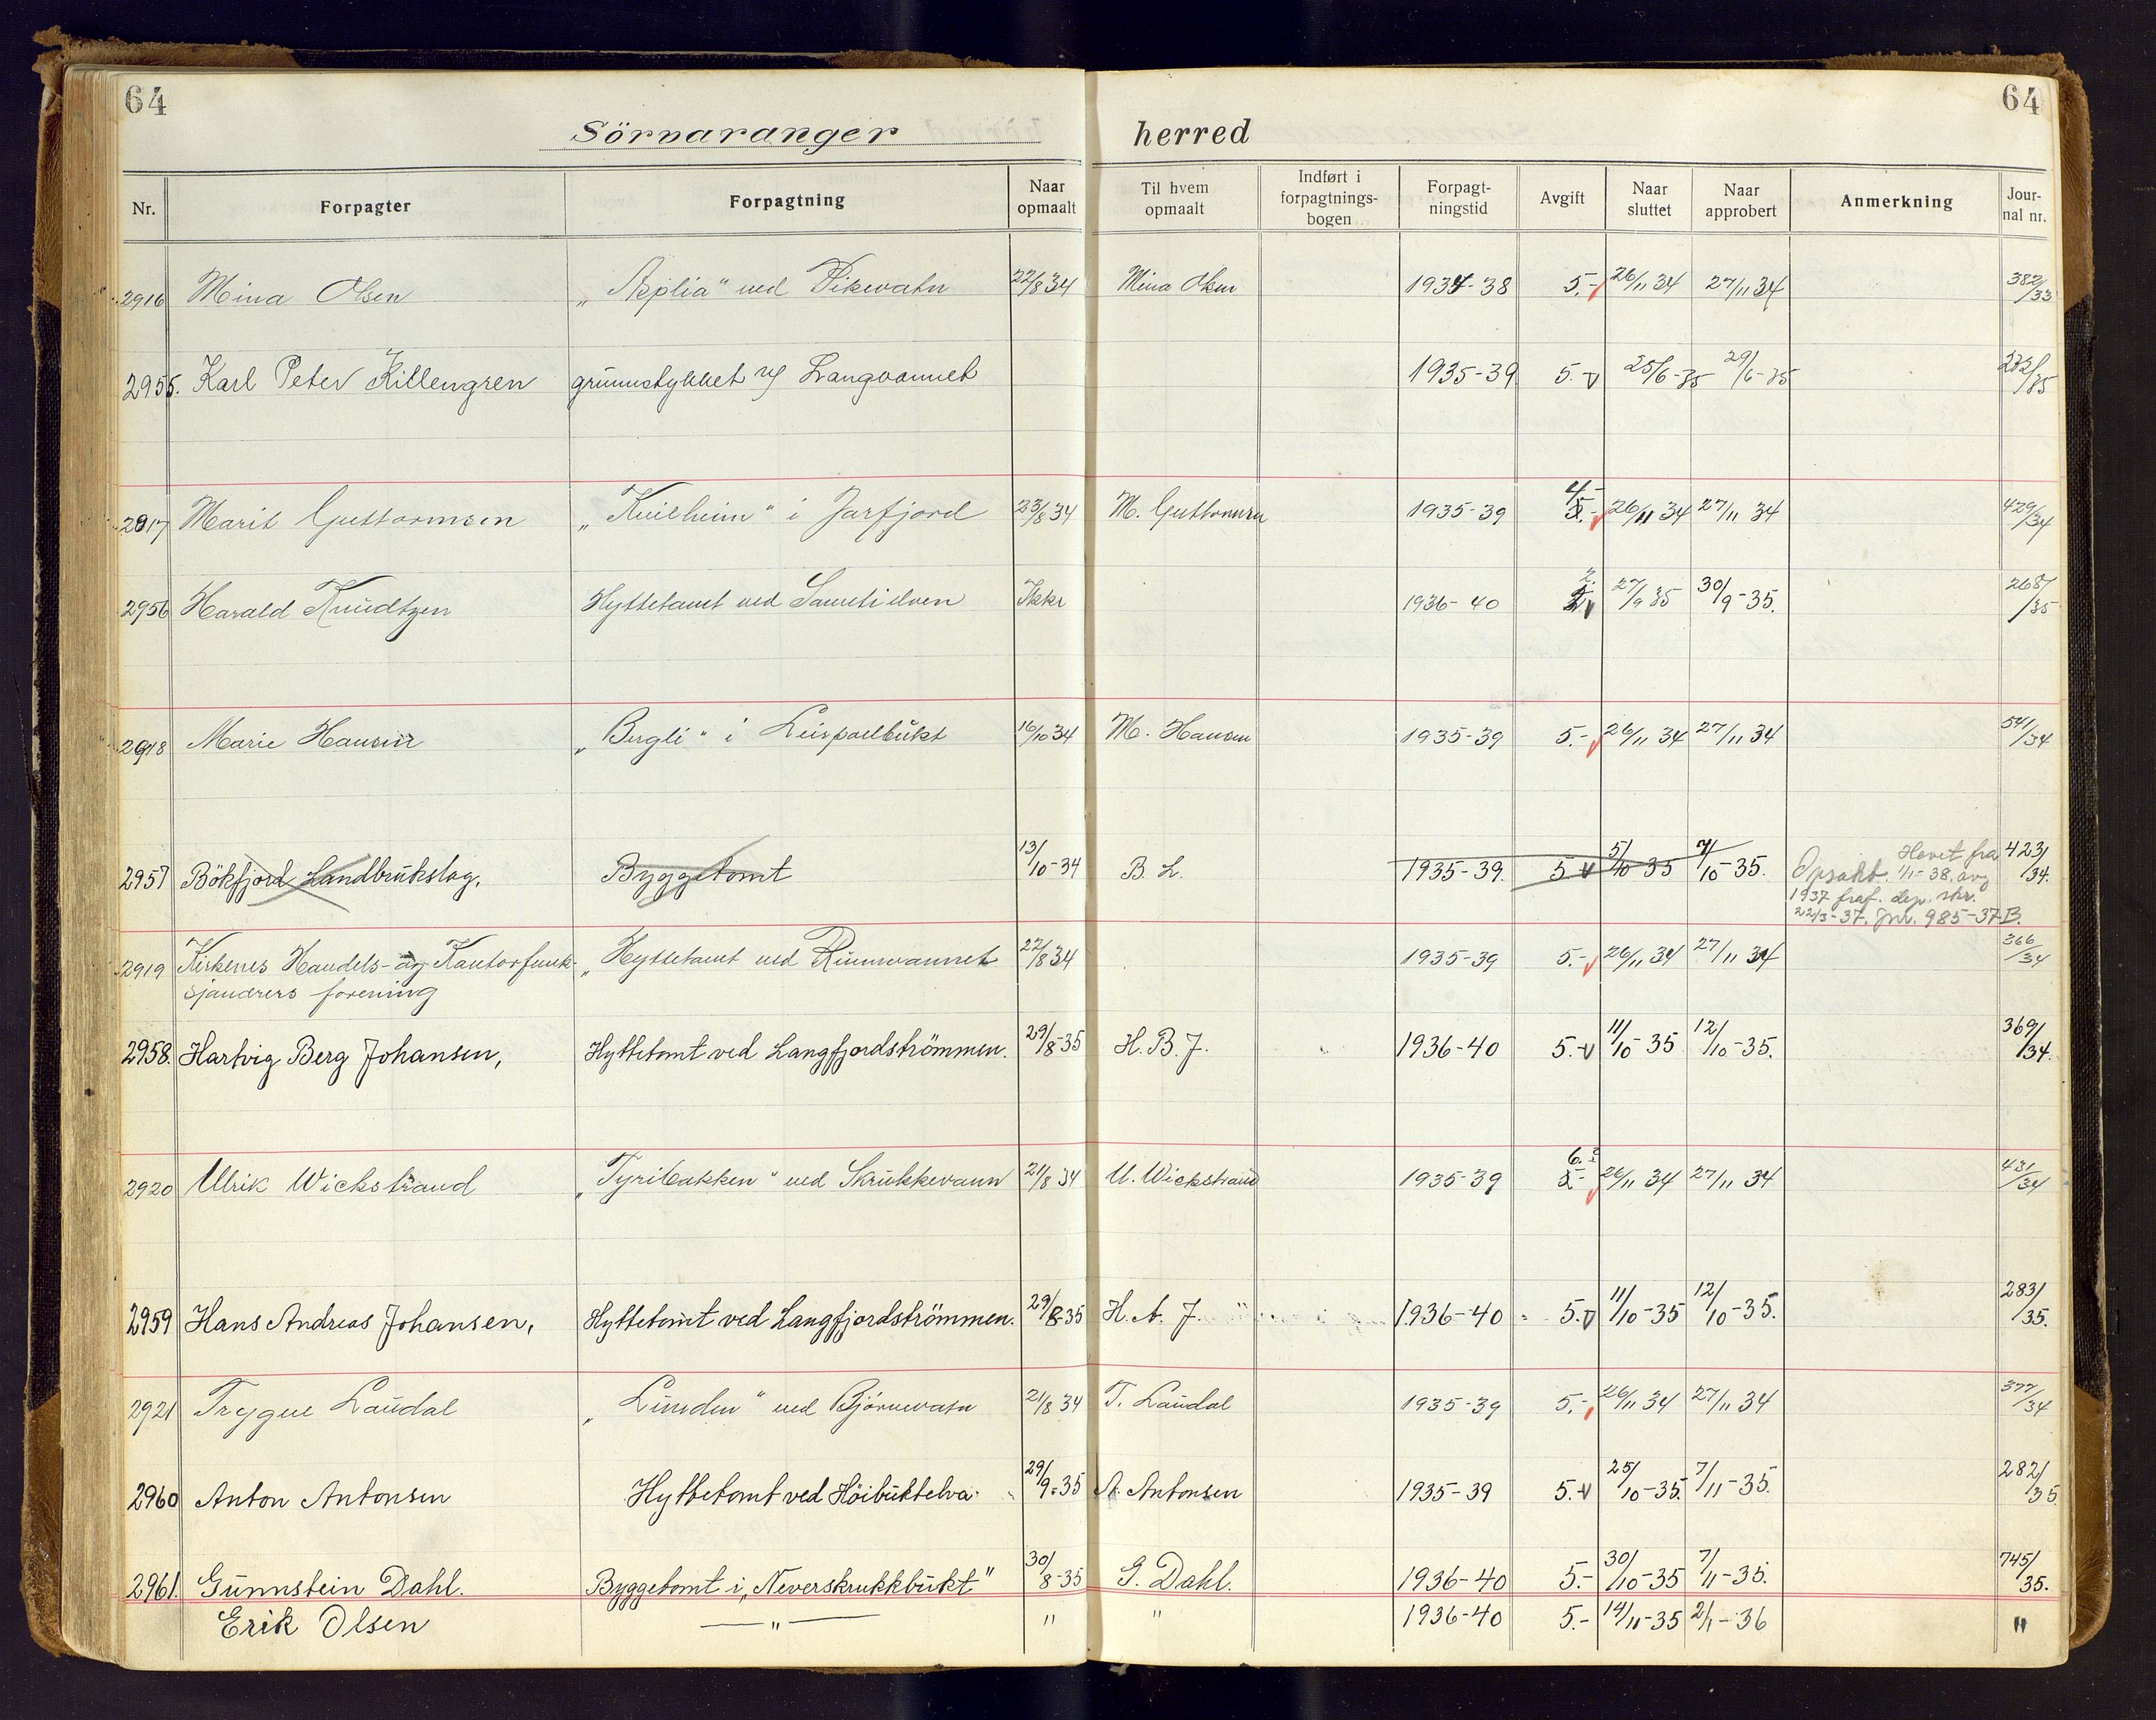 64
64
Sörvaranger herred
Nr. Forpagter Forpagtning Naar opmaalt Til hvem opmaalt Indført i forpagtnings-bogen Forpagt-ningstid Avgift Naar sluttet Naar approbert Anmerkning Jour-nal nr.
2916 Mina Olsen „Asplia" ved Pikevatn 22/8 34 Mina Olsen 1934-38 5.- 26/11 34 27/11 34 382/33
2955. Karl Peter Killengren grunnstykket v/ Langvannet 1935-39 5.- 25/6-35 29/6-35 /35
2917 Marit Guttormsen i Jarfjord 23/8 34 M. Guttormsen 1935-39 4- 5.- 26/11 34 27/11 34 429/34
2956 Harald Knudtzen Hyttetomt ved Sametielven Ikke 1936-40 2. 27/9 35 30/9-35. 268/35
2918 Marie Hansen „Bergli" i Leirpollbukt 16/10 34 M. Hansen 1935-39 5.- 26/11 34 27/11 34 541/34
2957 Bökfjord Landbrukslag. Byggetomt 13/10-34 B. L. 1935-39. 5 5/10-35 7/10-35. Hevet fra 423/34.
Opsakt. 1/1-38. avg
1937 fraf. dep. skr.
22/3-37. Jnr. 985-37B.
2919 Kirkenes Handels- og Kontorfunk- „Hyttetomt ved 22/8 34 1935-39 5.- 26/11 34 27/11 34 366/34
sjonærers forening
2958. Hartvig Berg Johansen, Hyttetomt ved Langfjordströmmen. 29/8-35 H. B. J. 1936-40 5.- 11/10-35 12/10-35. 369/34.
2920 Ulrik Wickstrand „Tyribakken" ved Skrukkevann 21/8 34 U. Wickstrand 1935-39 6.- 26/11 34 27/11 34 431/34
2959 Hans Andreas Johansen, Hyttetomt ved Langfjordströmmen. 29/8-35 H. A. J. 1936-40 5. 11/10-35 12/10-35. 283/35.
2921 Trygve Laudal ved Bjørnevatn 21/8 34 T. Laudal 1935-39 5.- 26/11 34 27/11 34 377/34
2960 Anton Antonsen Hyttetomt ved Höibuktelva. 29/9-35 A. Antonsen 1935-39 5.- 25/10-35. 7/11-35. 282/35
2961. Gunnstein Dahl. Byggetomt i „Neverskrukkbukt" 30/8-35 G. Dahl. 1936-40 5.- 30/10-35 7/11-35. 745/35.
Erik Olsen —"— " " 1936-40 5.- 14/11-35 2/1-36 "